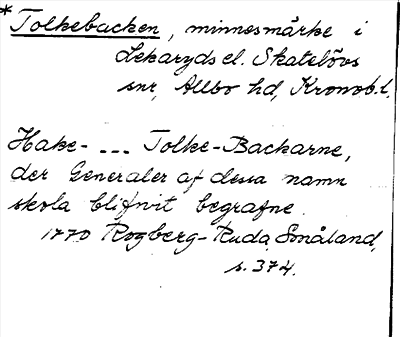 * Tolkebacken, minnesmärke i
Lekaryds el. Skatelövs
snr, Allbo hd, Kronob. l.
Hake- --- Tolke-Backarne,
der Generaler af dessa namn
skola blifvit begrafne.
1770 Rogberg-Ruda, Småland,
s. 374.